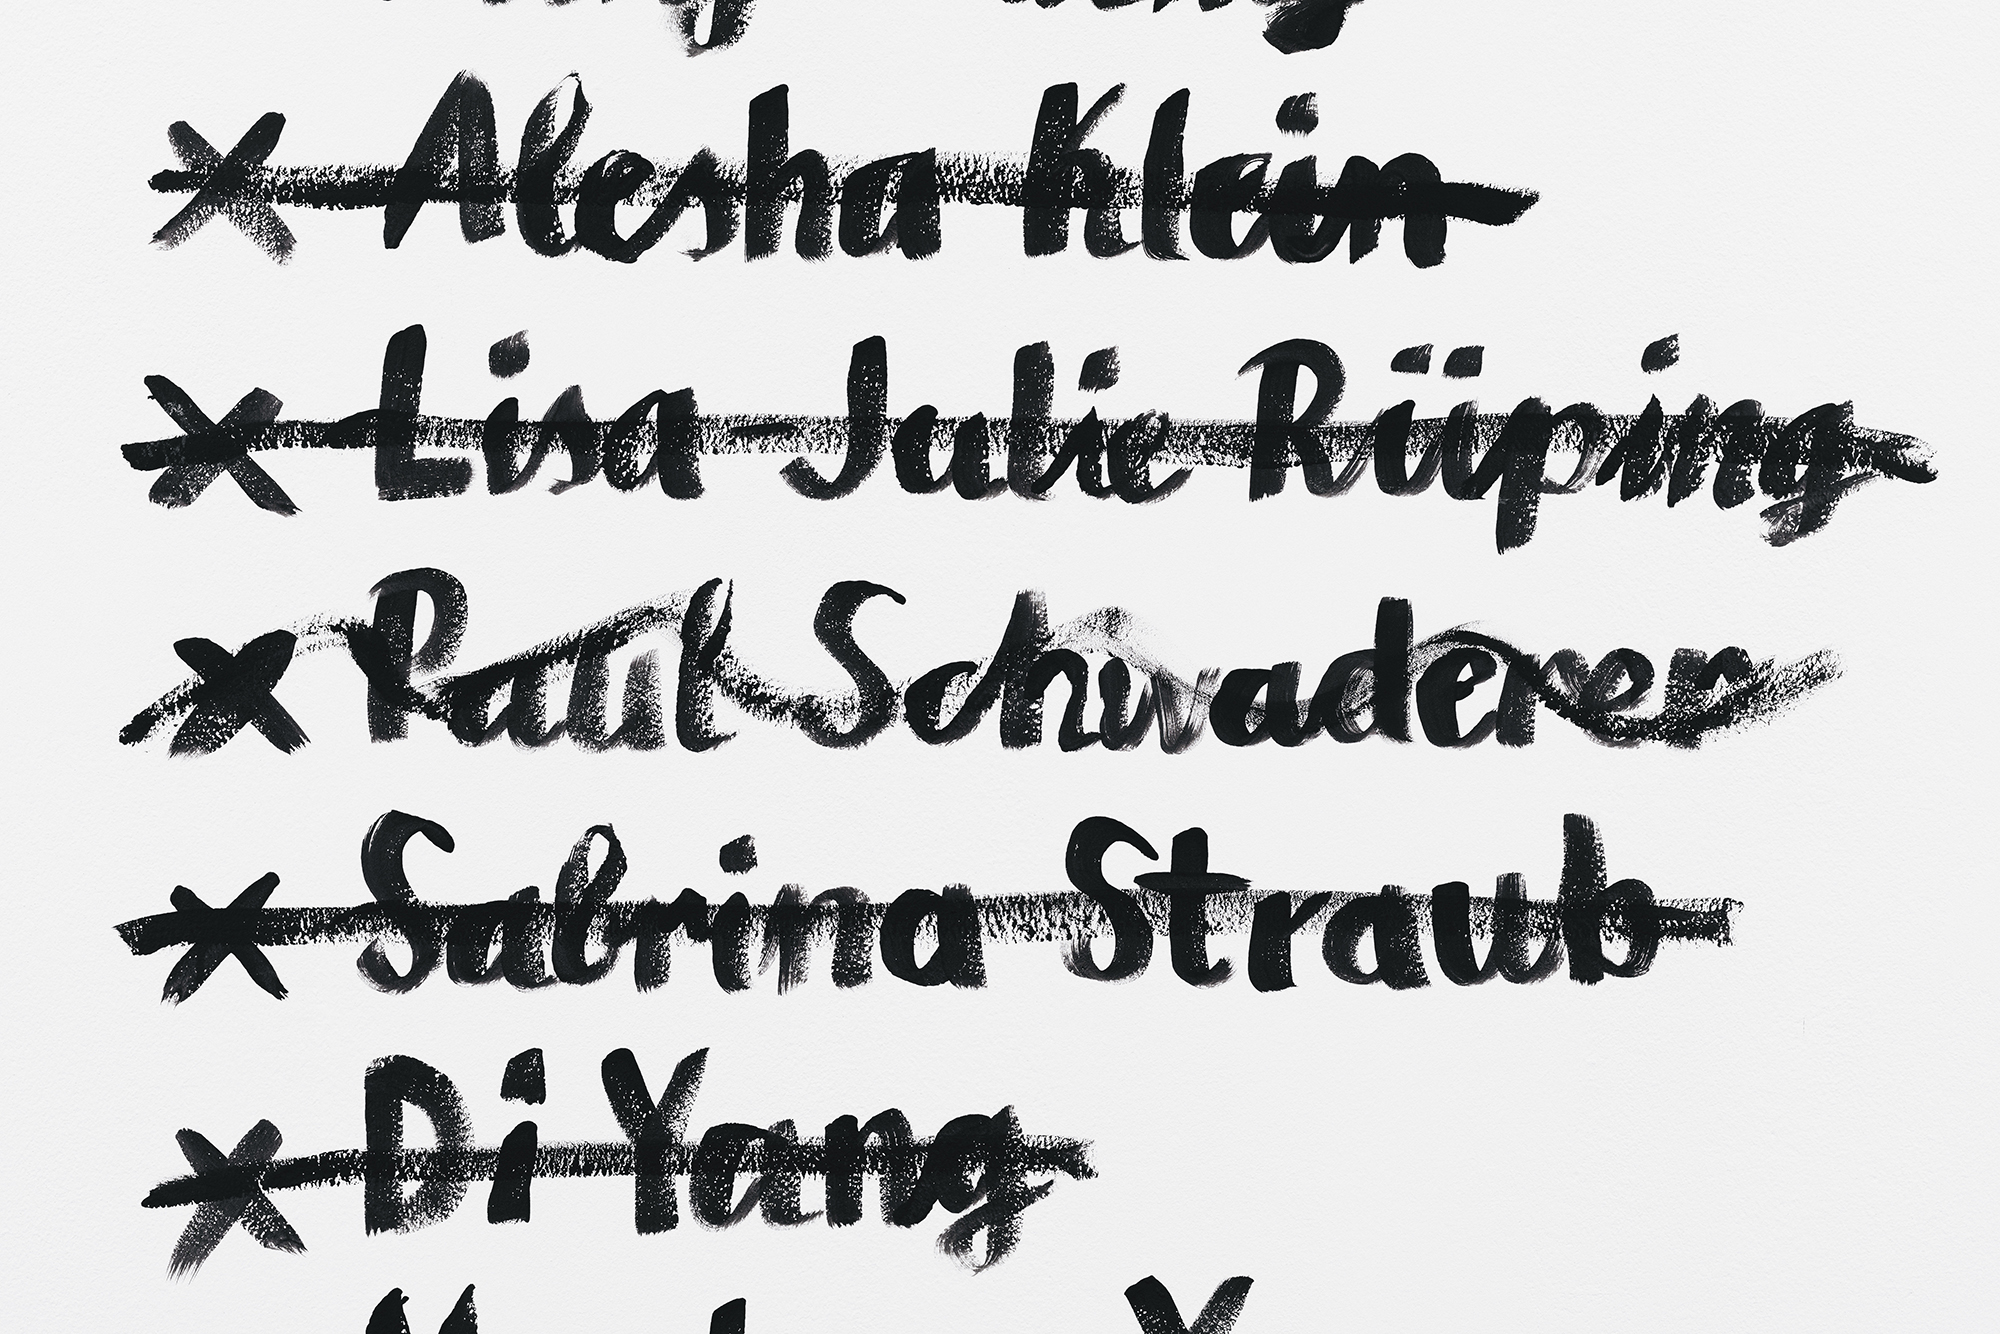 × Alesha Klein
× Lisa-Julie Rüping
× Paul Schwaderer
× Sabrina Straub
× Di Yang